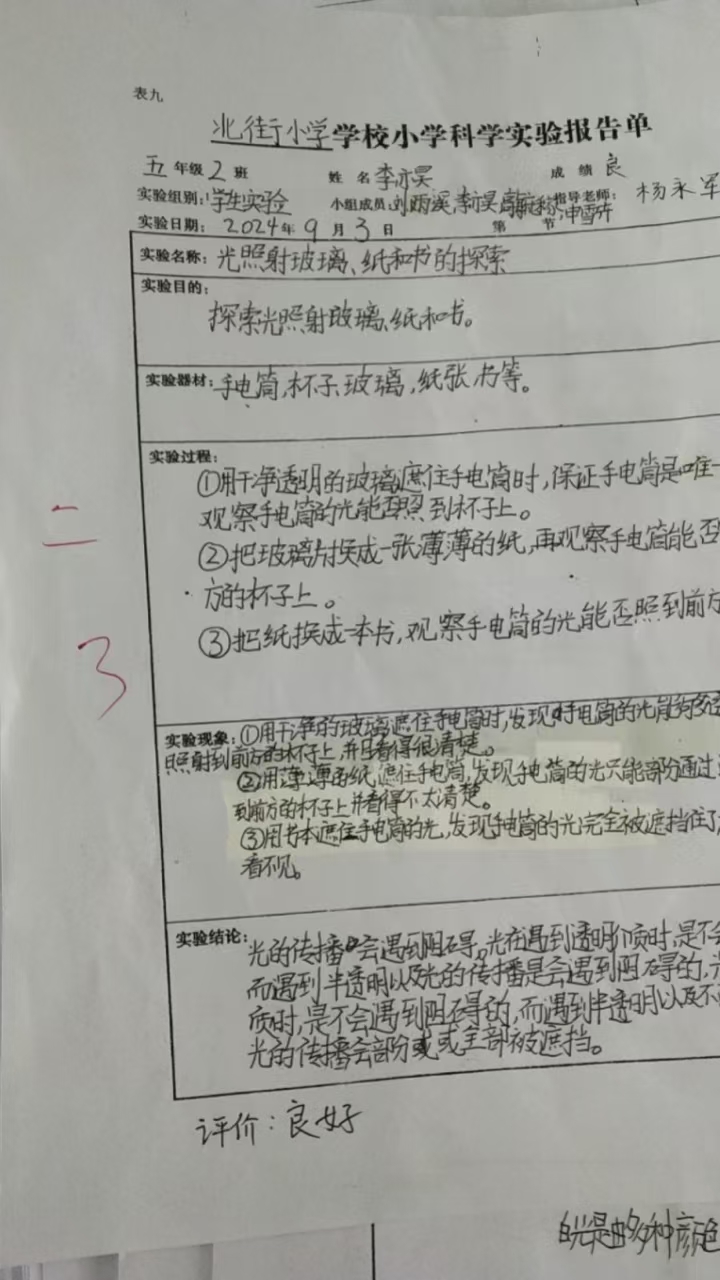 表九
北街小学学校小学科学实验报告单
五年级2班 姓名 李亦昊 成绩 良
实验组别:学生实验 小组成员:刘雨溪,李亦昊 指导老师: 杨永军
申雪卉
实验日期: 2024年9月3日 第 节
实验名称:光照射玻璃、纸和书的探索
实验目的:
探索光照射玻璃、纸和书。
实验器材:手电筒,杯子、玻璃,纸张、书等。
实验过程:
①用干净透明的玻璃遮住手电筒时,保证手电筒是唯一
观察手电筒的光能否照到杯子上。
②把玻璃片换成一张薄薄的纸,再观察手电筒能否
方的杯子上。
③把纸换成一本书,观察手电筒的光能否照到前方
二
3
实验现象:①用干净的玻璃遮住手电筒时,发现手电筒的光能够
照射到前方的杯子上,并且看得很清楚。
②用薄薄的纸,遮住手电筒,发现手电筒的光只能部分通过
到前方的杯子上并看得不太清楚。
③用书本遮住手电筒的光,发现手电筒的光完全被遮挡住了
看不见。
实验结论:光的传播会遇到阻碍。光在遇到透明介质时,是不会
而遇到半透明以及光的传播是会遇到阻碍的,光
质时,是不会遇到阻碍的,而遇到半透明以及不
光的传播会部份或或全部被遮挡。
评价:良好
白光是由多种颜色